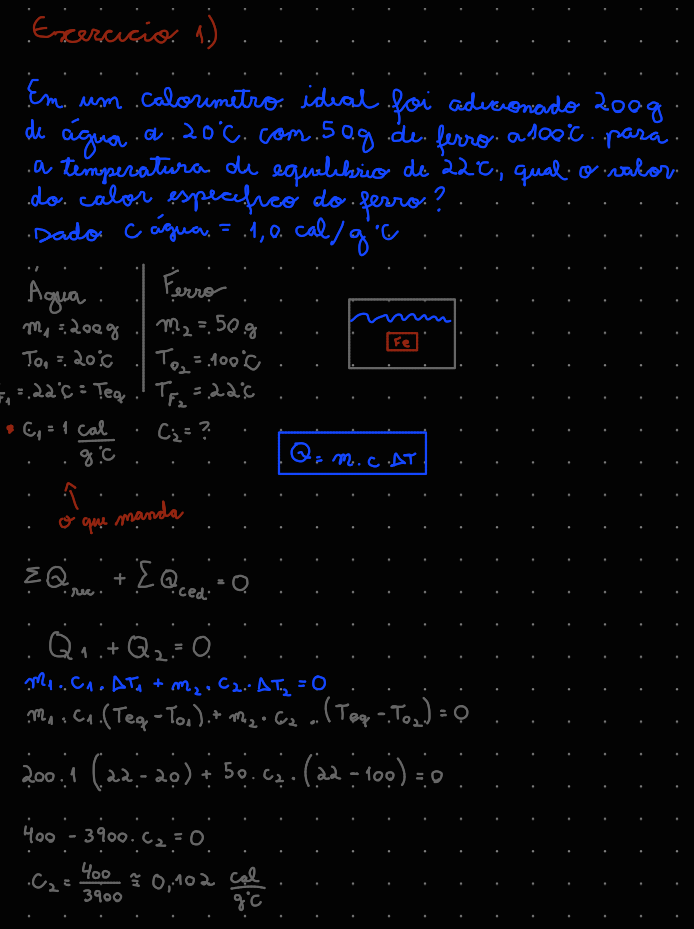 Exercício 1)
Em um calorimetro ideal foi adicionado 200g
de água a 20°C com 50g de ferro a 100°C. para
a temperatura de equilíbrio de 22°C, qual o valor
do calor específico do ferro?
Dado c água = 1,0 cal/g°C
Água
m₁ = 200g
T₀₁ = 20°C
F₁ = 22°C = Teq
C₁ = 1 cal/g°C
o que manda
Ferro
m₂ = 50g
T₀₂ = 100°C
T_F₂ = 22°C
C₂ = ?
Fe
Q = m . c . ΔT
ΣQrec + ΣQced = 0
Q₁ + Q₂ = 0
m₁ . c₁ . ΔT₁ + m₂ . c₂ . ΔT₂ = 0
m₁ . c₁ . (Teq - T₀₁) + m₂ . c₂ . (Teq - T₀₂) = 0
200 . 1 (22 - 20) + 50 . c₂ . (22 - 100) = 0
400 - 3900 . c₂ = 0
C₂ = 400/3900 ≅ 0,102 cal/g°C